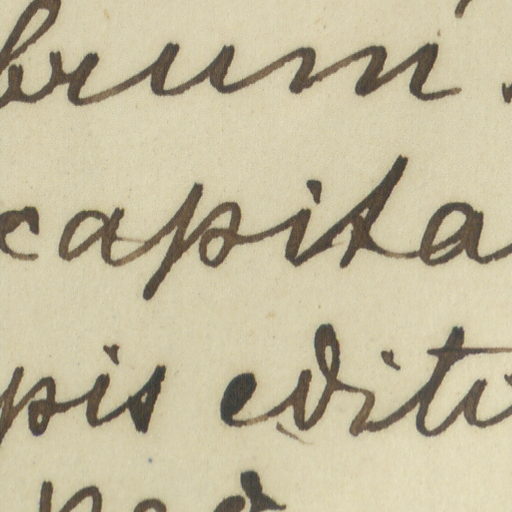 brum
capita
pis editi